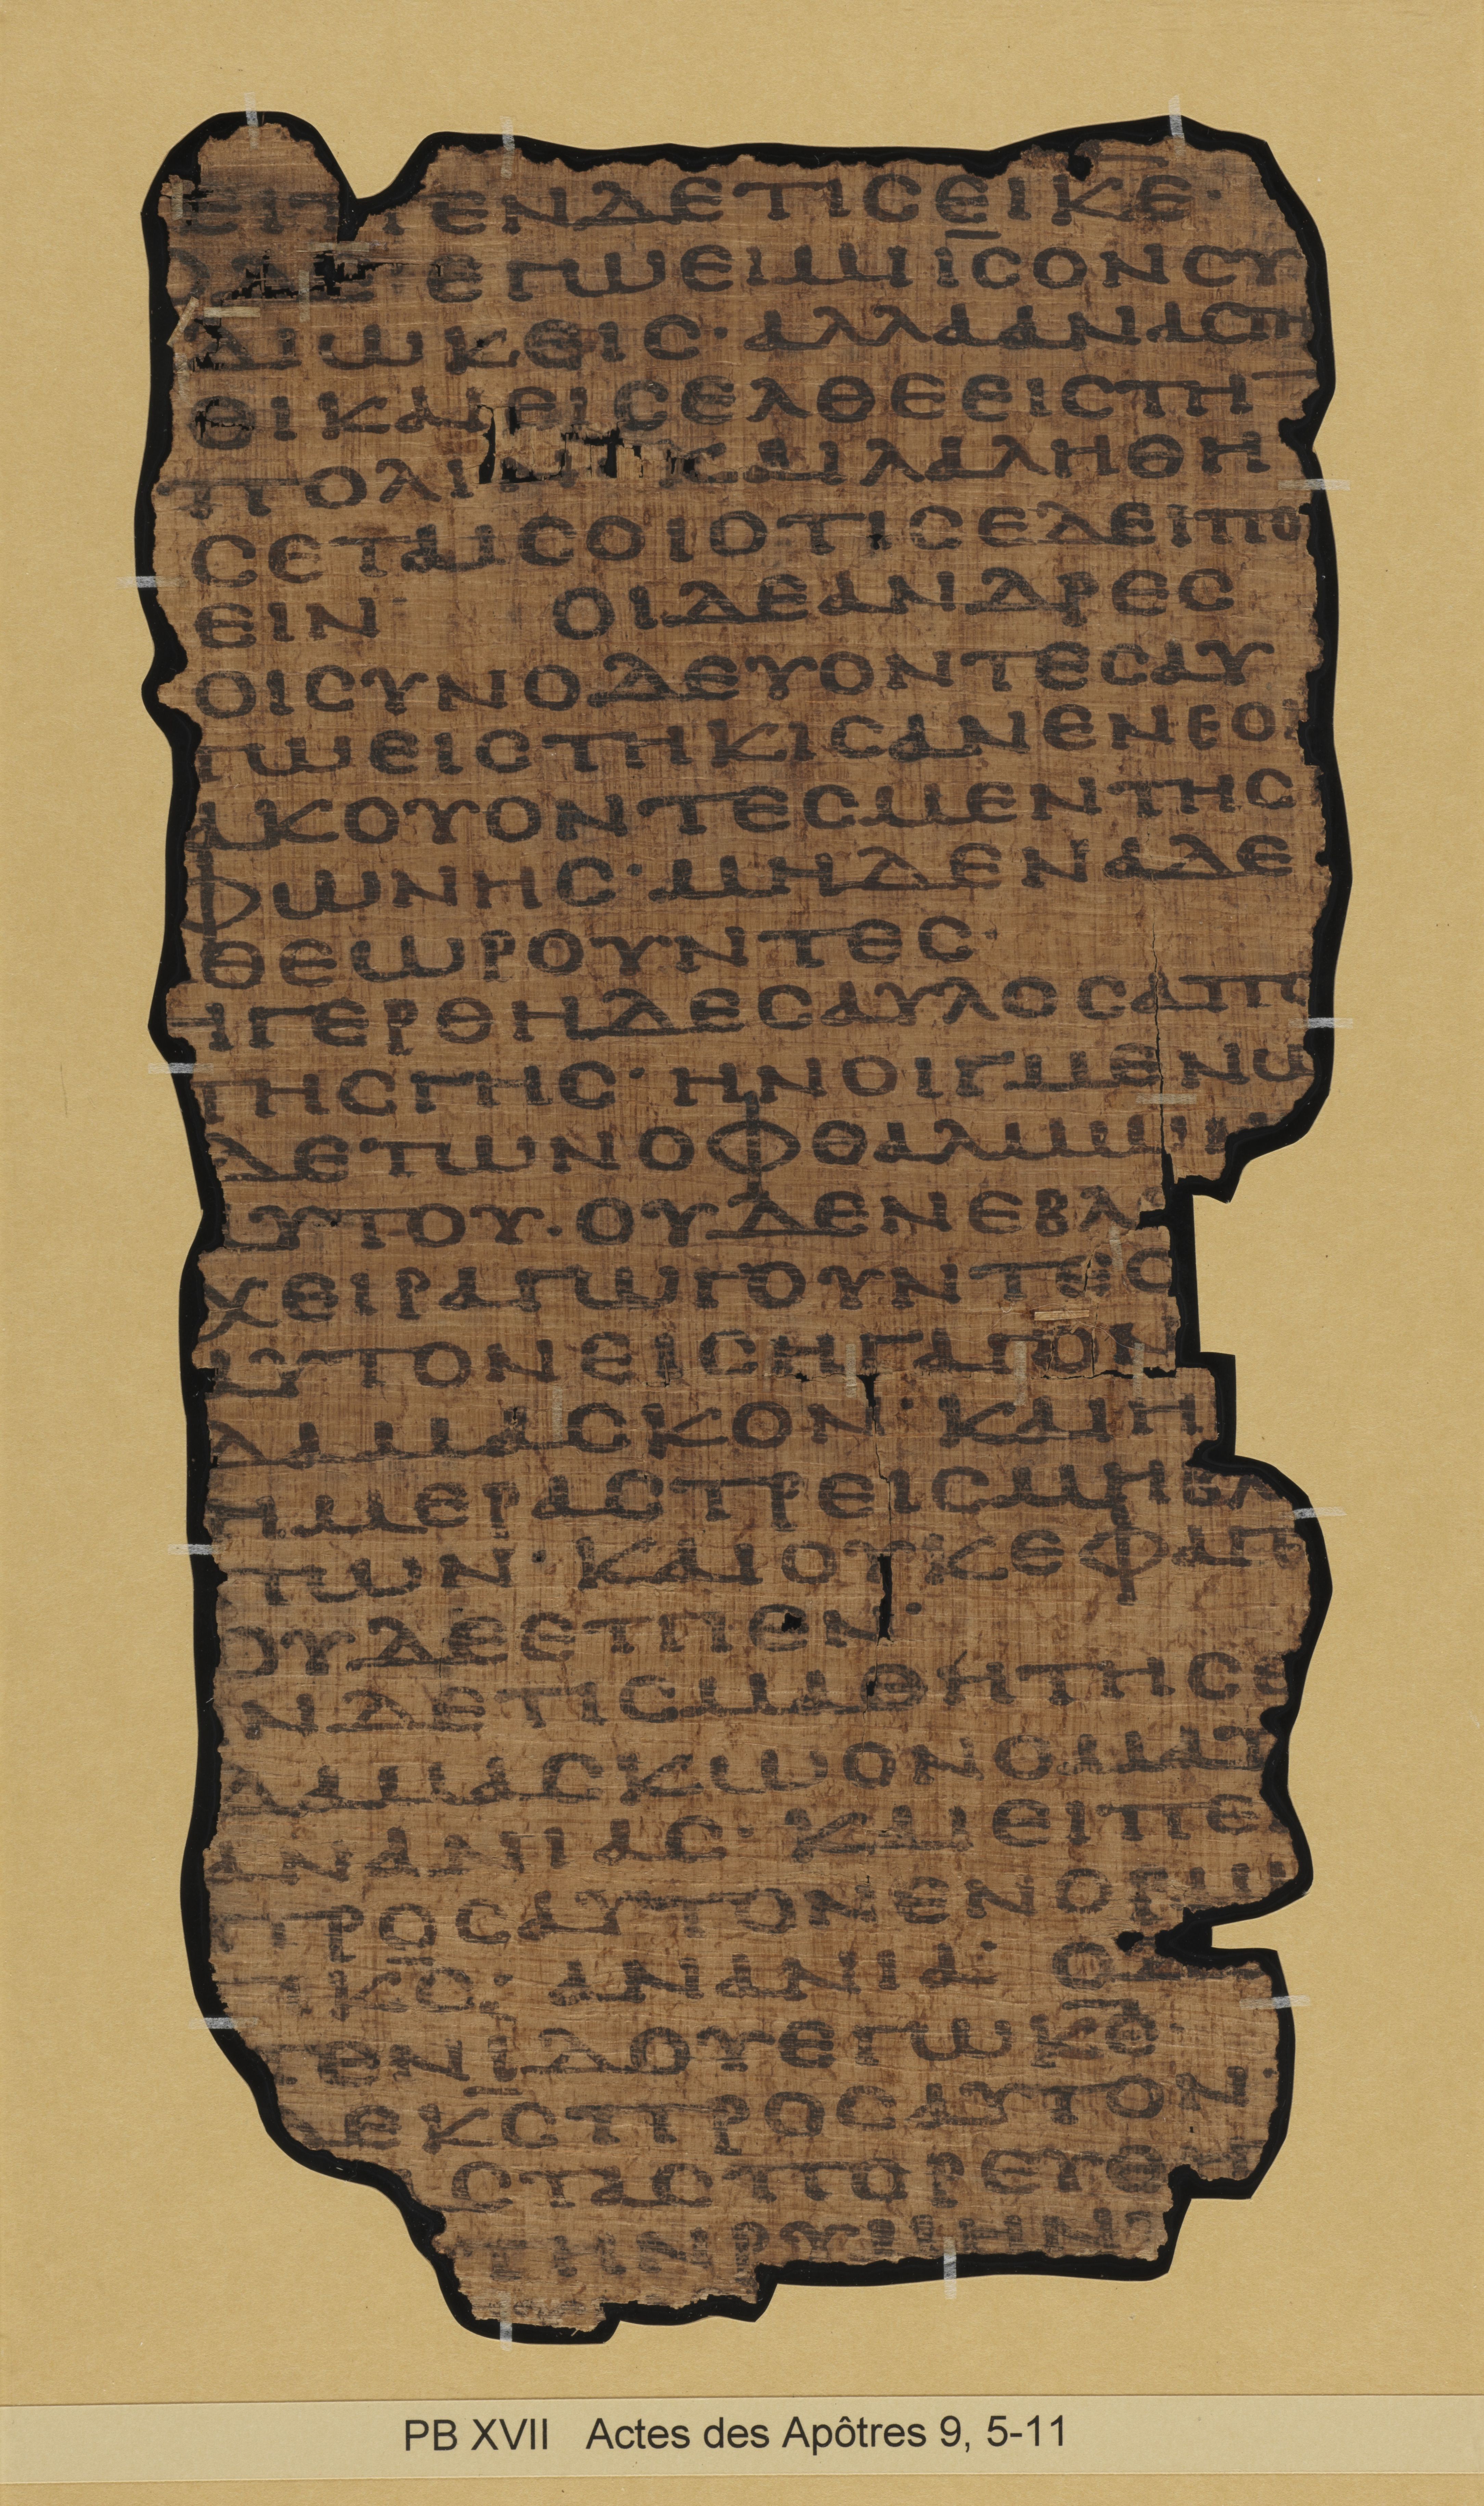 ΕΙΠΕΝΔΕΤΙΣΕΙΚΕ·
ΟΔΕ·ΕΓΩΕΙΜΙΙΣΟΝΣΥ
ΔΙΩΚΕΙΣ·ΑΛΛΑΑΝΑΣΤΗ
ΘΙΚΑΙΕΙΣΕΛΘΕΕΙΣΤΗ
ΠΟΛΙΝΚΑΙΛΑΛΗΘΗ
ΣΕΤΑΙΣΟΙΟΤΙΣΕΔΕΙΠΟ
ΕΙΝ· ΟΙΔΕΑΝΔΡΕΣ
ΟΙΣΥΝΟΔΕΥΟΝΤΕΣΑΥ
ΤΩΕΙΣΤΗΚΙΣΑΝΕΝΕΟΙ
ΑΚΟΥΟΝΤΕΣΜΕΝΤΗΣ
ΦΩΝΗΣ·ΜΗΔΕΝΑΔΕ
ΘΕΩΡΟΥΝΤΕΣ·
ΗΓΕΡΘΗΔΕΣΑΥΛΟΣΑΠ
ΤΗΣΓΗΣ·ΗΝΟΙΓΜΕΝΩ
ΔΕΤΩΝΟΦΘΑΛΜΩΝ
ΑΥΤΟΥ·ΟΥΔΕΝΕΒΛ
ΧΕΙΡΑΓΩΓΟΥΝΤΕΣ
ΑΥΤΟΝΕΙΣΗΓΑΓΟΝ
ΔΑΜΑΣΚΟΝ·ΚΑΙΗ
ΗΜΕΡΑΣΤΡΕΙΣΜΗΒΛ
ΠΩΝ·ΚΑΙΟΥΚΕΦΑΓ
ΟΥΔΕΕΠΙΕΝ·
ΝΔΕΤΙΣΜΑΘΗΤΗΣΕ
ΔΑΜΑΣΚΩΟΝΟΜΑΤ
ΑΝΑΝΙΑΣ·ΚΑΙΕΙΠΕ
ΠΡΟΣΑΥΤΟΝΕΝΟΡΜ
ΤΙΚΟ·ΑΝΑΝΙΑ·ΟΔ
ΠΕΝΙΔΟΥΕΓΩΚΕ·
ΔΕΚΣΠΡΟΣΑΥΤΟΝ·
ΣΤΑΣΠΟΡΕΥΘΗ
ΤΗΝΡΥΜΗΝ
PB XVII Actes des Apôtres 9, 5-11